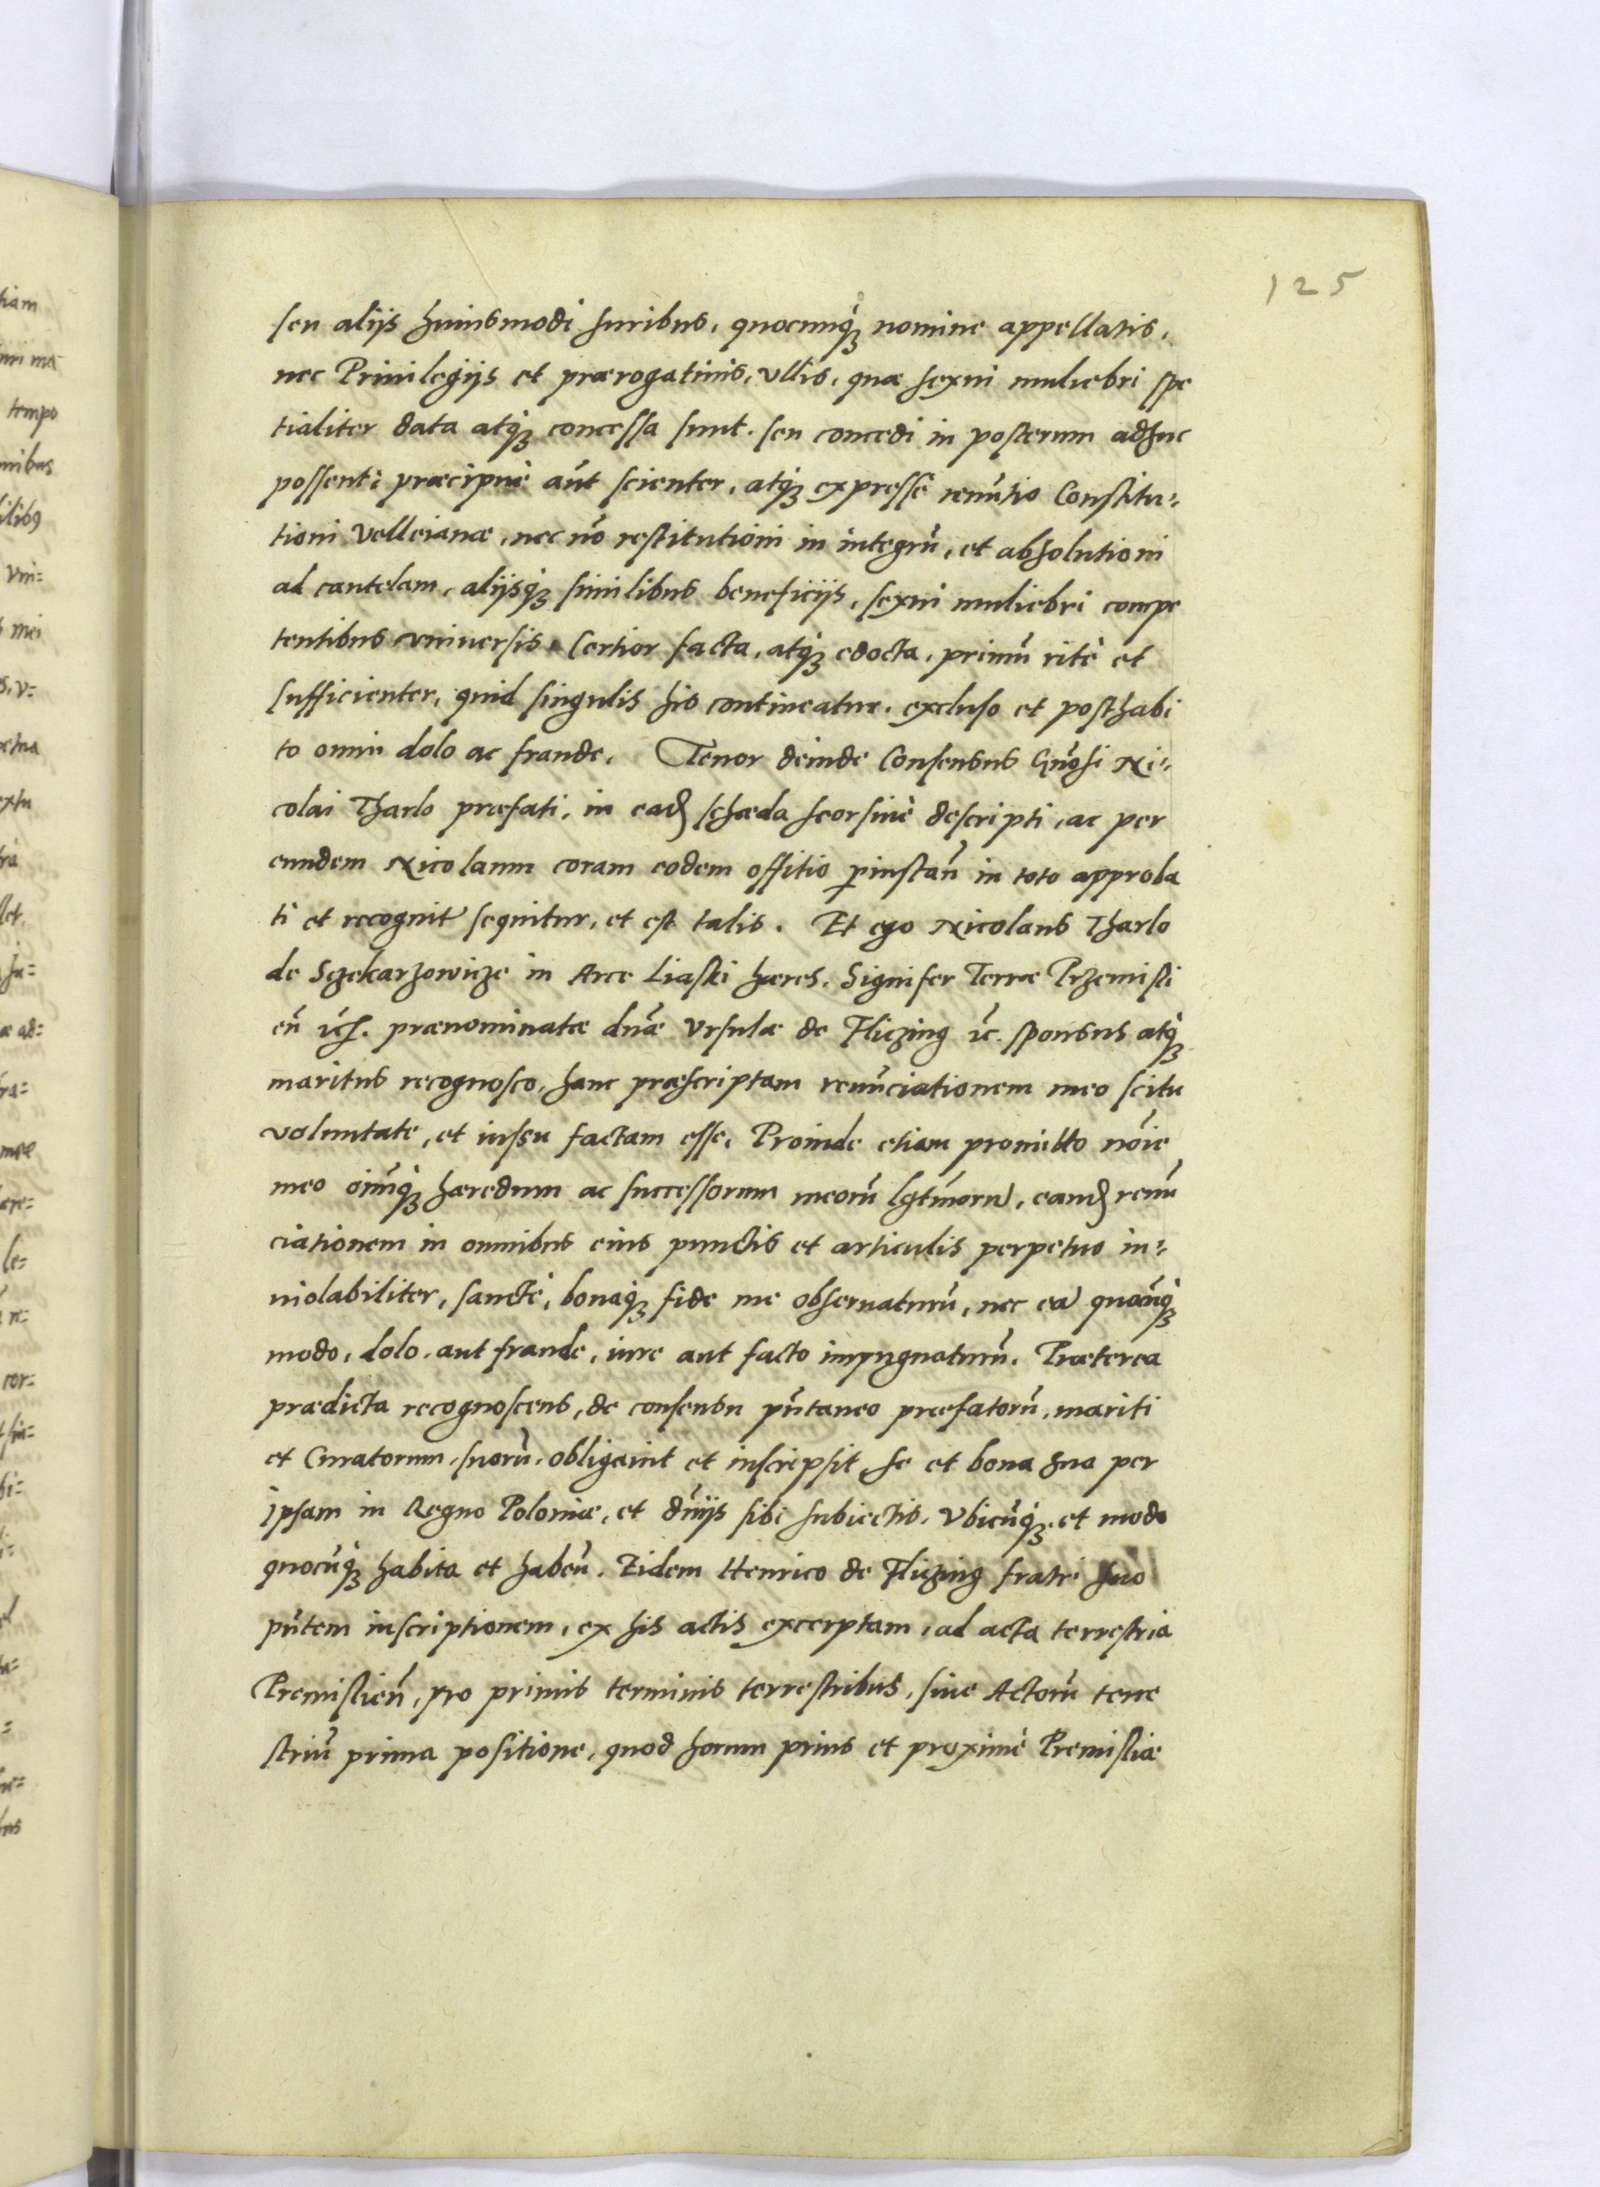 125
seu alijs huiusmodi Juribus, quocunq̣ꝫ nomine appellatis,
nec Priuilegijs et prærogatiuis, vllis, quæ sexui muliebri spe
tialiter data atq̣ꝫ concessa sunt. seu concedi in posterum adhuc
possent: præcipuè aūt scienter, atq̣ꝫ expressè renūtio Constitu:
tioni Velleianæ, nec nō restitutioni in integrū, et absolutioni
ad cautelam, alijsq̣ꝫ similibus beneficijs, sexui muliebri compe
tentibus vniuersis. Certior facta, atq̣ꝫ edocta, primū ritè et
sufficienter, quid singulis his contineatur. excluso et posthabi
to omni dolo ac fraude. Tenor deinde Consensus Gn̄osi Ni:
colai Tharlo præfati, in eadꝫ schæda seorsiuè descripti, ac per
eundem Nicolaum coram eodem offitio ꝑinstan̄ in toto approba
ti et recognit sequitur, et est talis. Et ego Nicolaus Tharlo
de Sczekarzowicze in Arce Liaski hæres, Signifer Terræ Przemisli
en̄ ꝛc̄. prænominatæ dn̄æ Vrsulæ de Fliczing ꝛc̄. sponsus atq̣ꝫ
maritus recognosco, hanc præscriptam renūciationem meo scitu
voluntate, et iussu factam esse, Proinde etiam promitto nōie
meo oīnīūq̣ꝫ hæredum ac successorum meorū lgtīmorū, eandꝫ renū
ciationem in omnibus eius punctis et articulis perpetuo in:
uiolabiliter, sanctè, bonaq̣ꝫ fide me obseruaturū, nec eā quoūq̣ꝫ
modo, dolo. aut fraude, iure aut facto impugnaturū. Præterea
prædicta recognoscens, de consensu pn̄taneo præfatorū, mariti
et Curatorum, suorū. obligauit et inscripsit, se et bona sua per
Ipsam in Regno Poloniæ, et dn̄ijs sibi subiectis. Vbicūq̣ꝫ, et modo
quocūq̣ꝫ habita et haben̄. Eidem Henrico de Fliczing fratri suo
pn̄tem inscriptionem, ex his actis excerptam, ad acta terrestria
Premislien̄, pro primis terminis terrestribus, siue Actorū terre
striū prima positione, quod horum prius et proximè Premisliæ